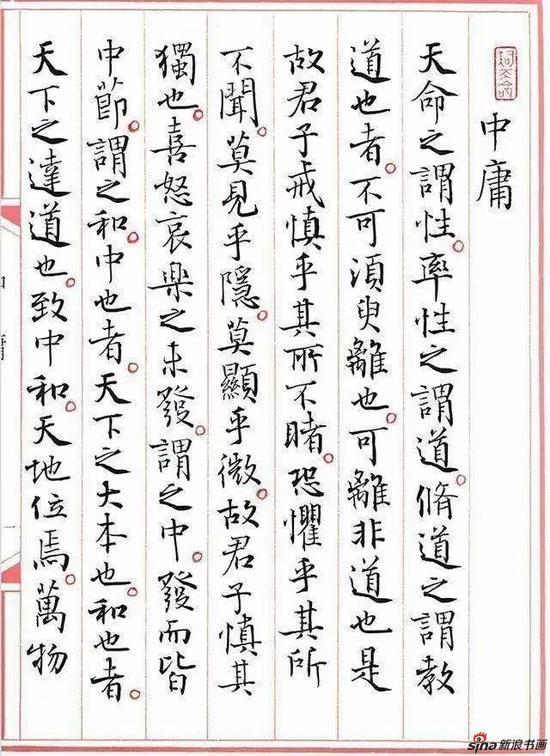 中庸
天命之謂性。率性之謂道。脩道之謂教
道也者。不可須臾離也。可離非道也是
故君子戒慎乎其所不睹。恐懼乎其所
不聞。莫見乎隱。莫顯乎微。故君子慎其
獨也。喜怒哀樂之未發。謂之中。發而皆
中節。謂之和。中也者。天下之大本也。和也者。
天下之達道也。致中和。天地位焉。萬物
sina 新浪书画